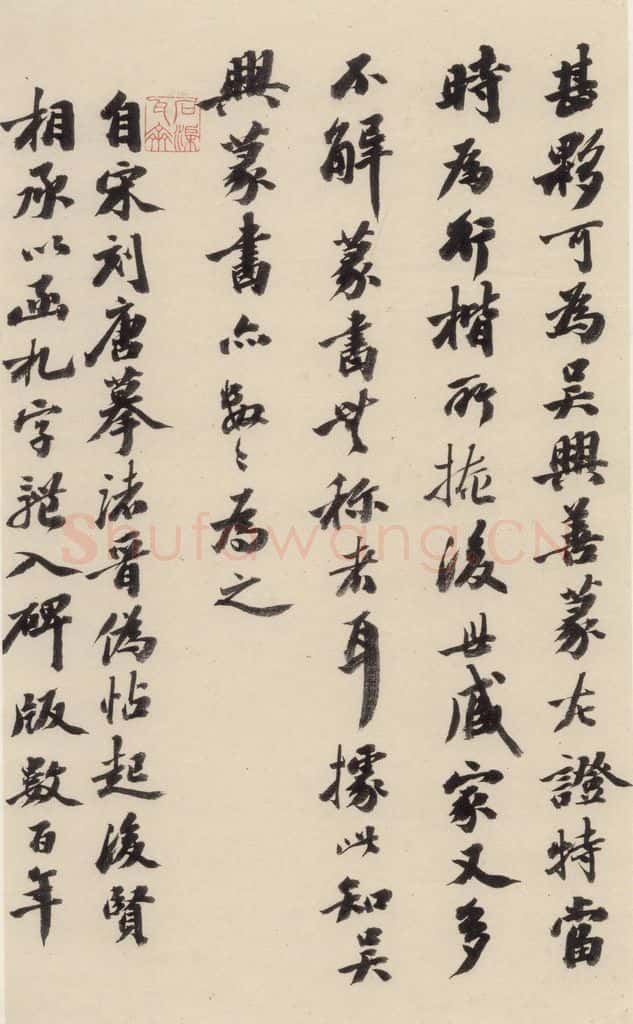 甚夥可為吳興善篆左證特當
時為行楷所掩後世臧家又多
不解篆書世稱者耳據此知吳
興篆書亦數〻為之
自宋刻唐摹諸晉偽帖起後賢
相承以函札字體入碑版數百年
Shufawang.CN